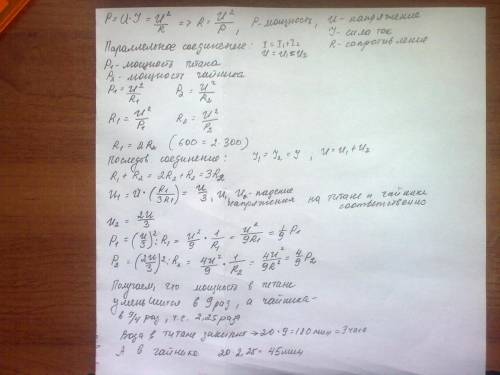 P = U · I = U²/R => R = U²/P, P - мощность, U - напряжение
I - сила тока
Параллельное соединение: I = I₁ + I₂
R - сопротивление
U = U₁ = U₂
P₁ - мощность титана
P₂ - мощность чайника
P₁ = U²/R₁ P₂ = U²/R₂
R₁ = U²/P₁ R₂ = U²/P₂
R₁ = 2R₂ (600 = 2·300)
Последов соединение: I₁ = I₂ = I, U = U₁ + U₂
R₁ + R₂ = 2R₂ + R₂ = 3R₂
U₁ = U · (R1/3R1) = U/3, U₁ U₂ - падение напряжения на титане и чайнике соответственно
U₂ = 2U/3
P₁ = (U/3)² : R₁ = U²/9 · 1/R₁ = U²/9R₁ = 1/9 P₁
P₂ = (2U/3)² : R₂ = 4U²/9 · 1/R₂ = 4U²/9R² = 4/9 P₂
Получаем, что мощность в титане
уменьшится в 9 раз, а чайника -
в 9/4 раз, т.е. 2,25 раза
Вода в титане закипит → 20·9 = 180 мин = 3 часа
А в чайнике 20·2,25 = 45 мин